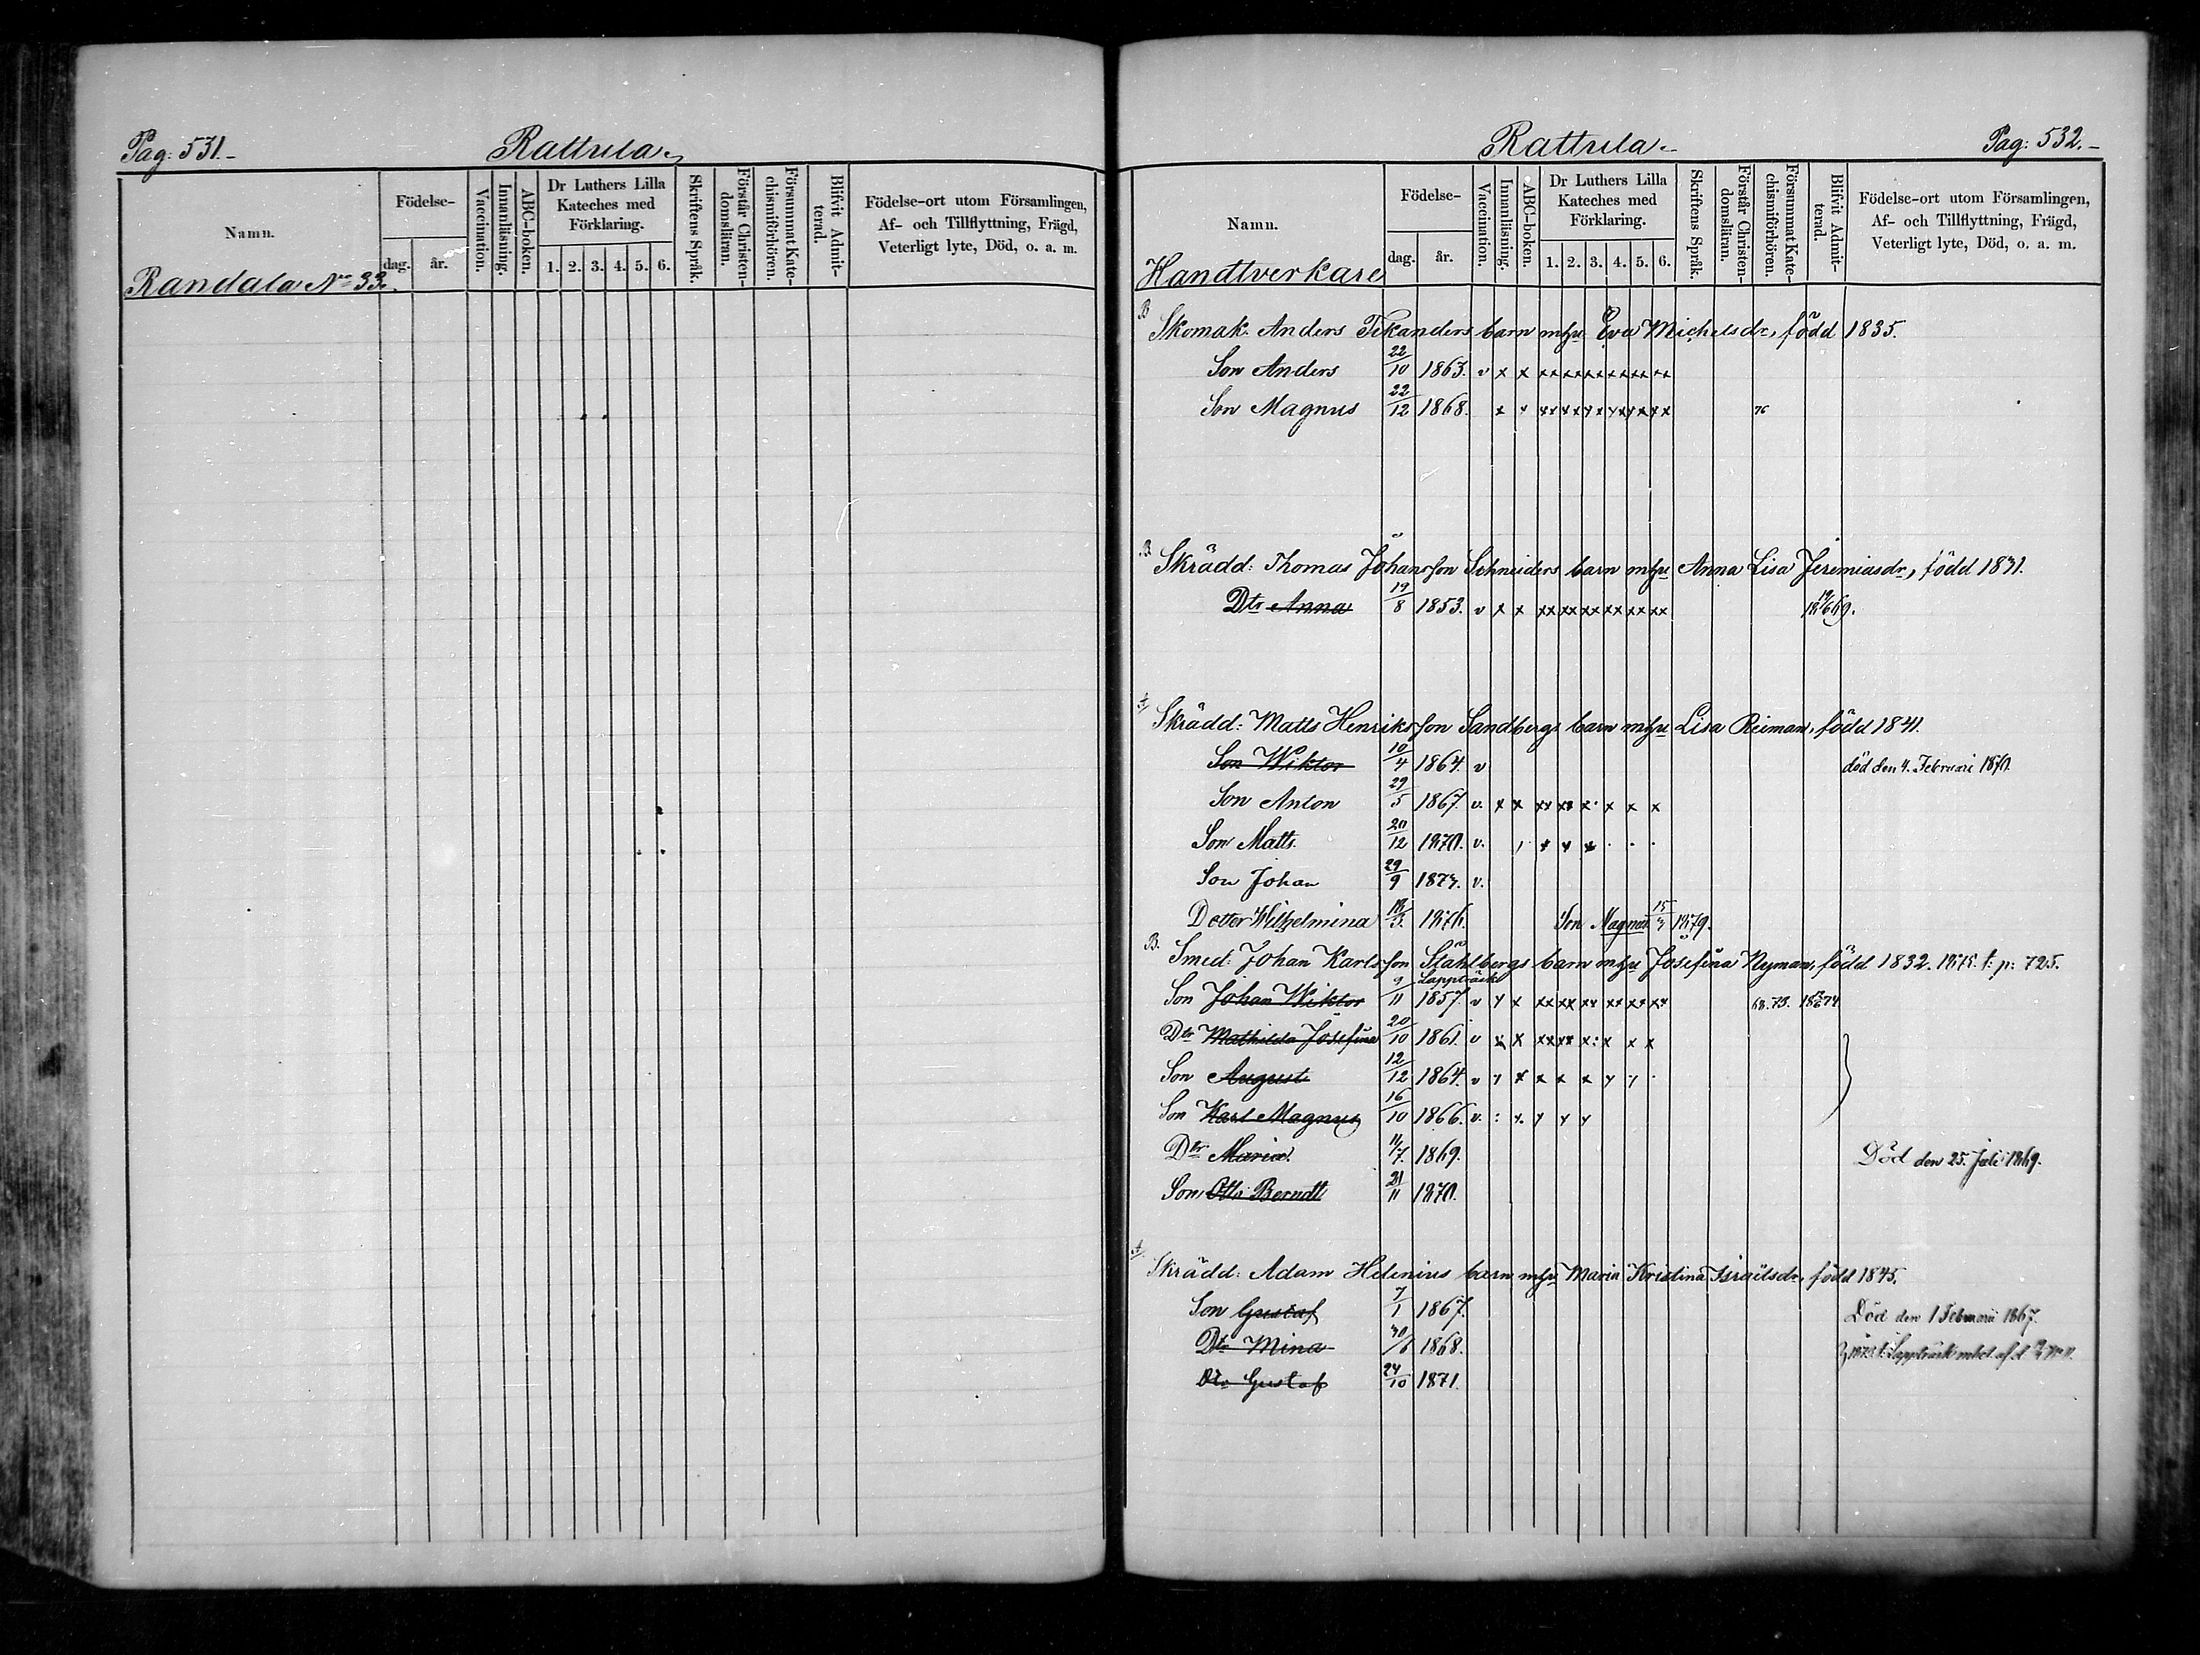 Pag: 531.-
Rattula
Namn.
Födelse-
dag. år.
Vaccination.
Innanläsning.
ABC-boken.
Dr Luthers Lilla Kateches med Förklaring.
1. 2. 3. 4. 5. 6.
Skriftens Språk.
Förstår Christen-domsläran.
Försummat Kate-chismiförhören.
Blifvit Admit-terad.
Födelse-ort utom Församlingen, Af- och Tillflyttning, Frägd, Veterligt lyte, Död, o. a. m.
Randala No 33.
Rattula.-
Pag: 532.-
Namn.
Födelse-
dag. år.
Vaccination.
Innanläsning.
ABC-boken.
Dr Luthers Lilla Kateches med Förklaring.
1. 2. 3. 4. 5. 6.
Skriftens Språk.
Förstår Christen-domsläran.
Försummat Kate-chismiförhören.
Blifvit Admit-terad.
Födelse-ort utom Församlingen, Af- och Tillflyttning, Frägd, Veterligt lyte, Död, o. a. m.
Handtverkare
B Skomak. Anders Tikanders barn mhu Eva Michelsdr, född 1835.
Son Anders 22/10 1863. v x x xx xx xx xx xx xx
Son Magnus 22/12 1868. x x xx xx xx xx xx xx 76
B. Skrädd: Thomas Johansson Schneiders barn mhu Anna Lisa Jeremiasdr, född 1831.
Dtr Anna 19/8 1853. v x x xx xx xx xx xx xx
Skrädd: Matts Henriksson Sandbergs barn mhu Lisa Reiman, född 1841.
Son Wiktor 10/4 1864. v död den 4. Februari 1870.
Son Anton 29/5 1867. v. x x xx xx x x x x
Son Matts 20/12 1870. v.
Son Johan 29/9 1873. v.
Dotter Wilhelmina 1876. Son Magnus 1879.
B. Smed: Johan Karlsson Ståhlbergs barn mhu Josefina Nyman, född 1832. 1875. t. p: 725.
Lappträsk
Son Johan Wiktor 9/11 1857. v x x xx xx xx xx xx xx
Dtr Mathilda Josefina 20/10 1861. v x x xx xx x: x x x
Son August 12/12 1864. v
Son Karl Magnus 16/10 1866. v.
Dtr Maria. 11/7. 1869. Död den 25. Juli 1869.
Son Otto Berndt 21/11 1870.
Skrädd: Adam Helenius barn mhu Maria Kristina Israelsdr, född 1845.
Son Gustaf 7/1 1867. Död den 1 Februari 1867.
Dtr Mina 30/8 1868.
Gustaf 24/10 1871.